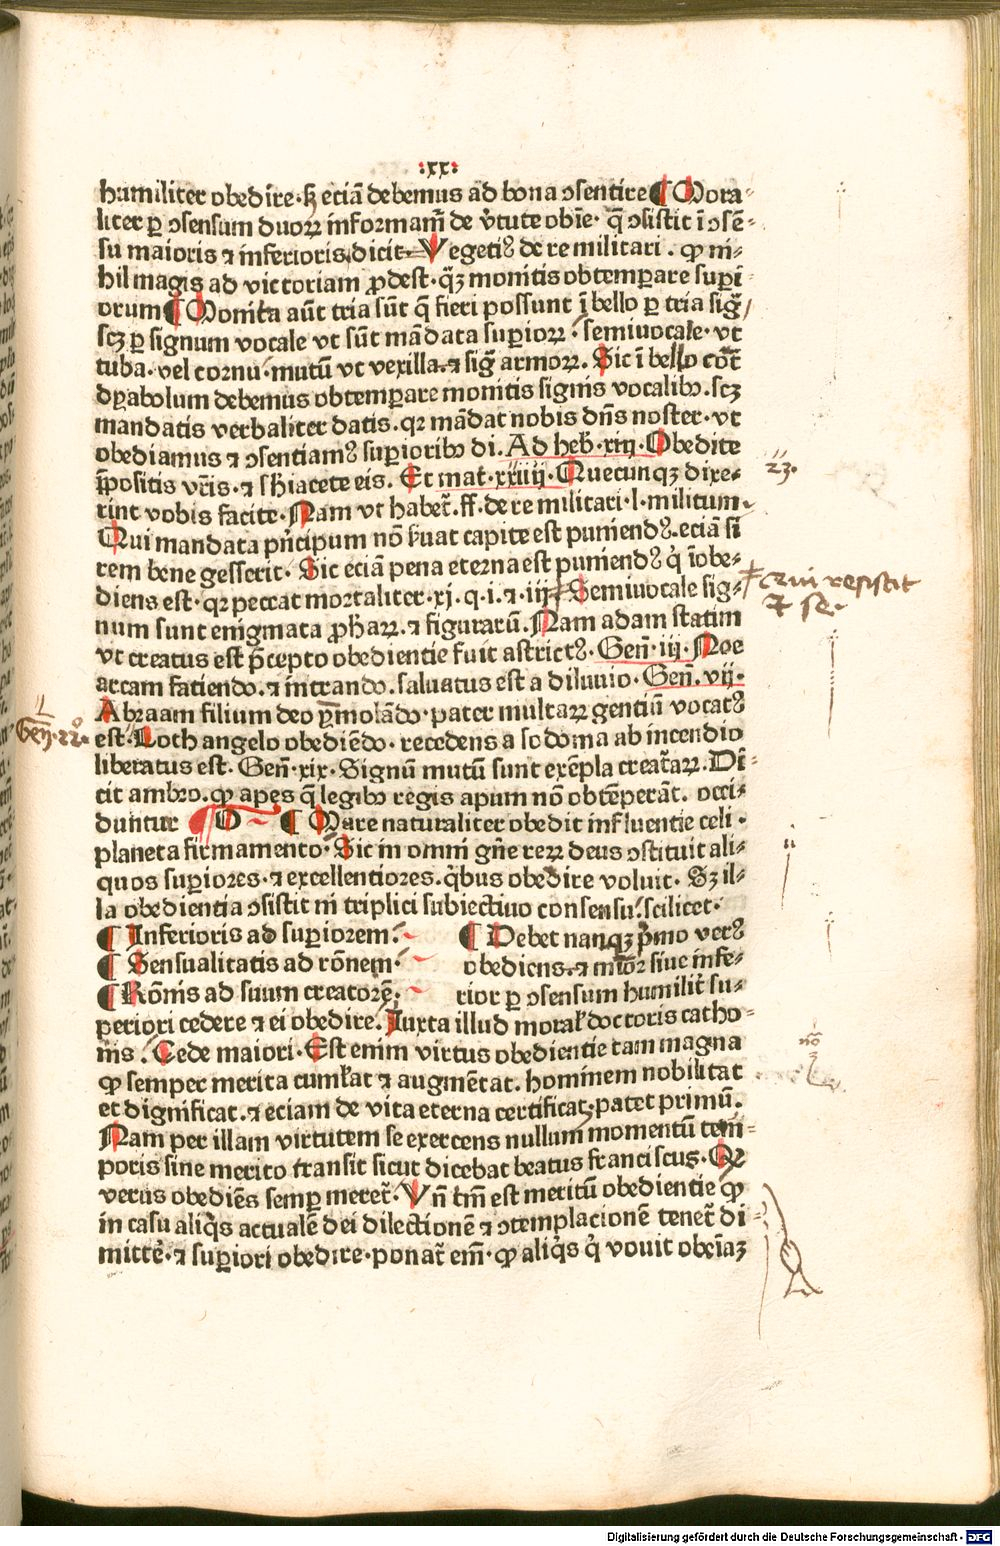 :xx:
humiliter obedire· sꝫ eciā debemus ad bona ↄsentire ¶ Mora-
liter ꝑ ↄsensum duoꝝ informam̄ de v̄tute obīe· q̄ ↄsistit ī ↄsē-
su maioris ⁊ inferioris dicit· Vegeti⁹ de re militari . ꝙ ni-
hil magis ad victoriam ꝓdest· q̄ꝫ monitis obtemꝑare suꝑi-
orum ¶ Monita aūt tria sūt q̄ fieri possunt ī bello ꝑ tria siḡ/
scꝫ ꝑ signum vocale vt sūt mādata suꝑioꝝ· semiuocale· vt
tuba· vel cornu· mutū vt vexilla· ⁊ siḡ armoꝝ. Sic ī bello cōt̄
dyabolum debemus obtemꝑare monitis signis vocalibꝰ. scꝫ
mandatis verbaliter datis. qꝛ mādat nobis dn̄s noster· vt
obediamus ⁊ ↄsentiam⁹ suꝑioribꝰ di. Ad heb· xiij· Obedite
p̄positis vr̄is· ⁊ shiacete eis. Et mat· xxiiij· Quecunqꝫ dixe-
23.
rint vobis facite· Nam vt habet̄. ff. de re militari· l· militum·
Qui mandata pn̄cipum nō ẜuat capite est puniend⁹. eciā si
rem bene gesserit· Sic eciā pena eterna est puniend⁹ q̇ īobe-
diens est· qꝛ peccat mortaliter· xj. q. i. ⁊ iij Semiuocale sig-
⁊ sꝫ.
num sunt enigmata ꝓhaꝝ. ⁊ figurarū. Nam adam statim
vt creatus est p̄cepto obedientie fuit astrict⁹. Gen̄· iij· Noe
arcam fatiendo. ⁊ intrando. saluatus est a diluuio· Gen̄. vij·
Gen̄· 22°.
Abraam filium deo ymolādo· pater multaꝝ gentiū vocat⁹
est· Loth angelo obediēdo· recedens a sodoma ab incendio
liberatus est· Gen̄· xix· Signū mutū sunt exēpla creat̄aꝝ. Di-
cit ambro. ꝙ apes q̄ legibꝰ regis apum nō obtēperāt. occi-
duntur ¶ O ~ ¶ Mare naturaliter obedit influentie celi·
planeta firmamento· Sic in omni gn̄e reꝝ deus ↄstituit ali-
quos suꝑiores· ⁊ excellentiores. q̇bus obedire voluit· Sꝫ il-
la obedientia ↄsistit in triplici subiectiuo consensu· scilicet·
¶ Inferioris ad suꝑiorem·
¶ Sensualitatis ad rōnem·
¶ Rōnis ad suum creatorē·
¶ Debet nanqꝫ pͥmo ver⁹
obediens· ⁊ minͦr siue infe-
rior ꝑ ↄsensum humilit̄ su-
periori cedere ⁊ ei obedire· Iuxta illud moral̄ doctoris catho-
nis· Cede maiori· Est enim virtus obedientie tam magna
nō
ꝙ semper merita cumĺat ⁊ augmētat. hominem nobilitat
et dignificat. ⁊ eciam de vita eterna certificat, patet primū.
Nam per illam virtutem se exercens nullum momentū tem-
poris sine merito transit sicut dicebat beatus franciscus· Qꝛ
verus obediēs semꝑ meret̄. Vn̄ tm̄ est meritū obedientie ꝙ
in casu aliq̇s actualē dei dilectionē ⁊ ↄtemplacionē tenet̄ di-
mitte᷑· ⁊ suꝑiori obedire· ponat̄ em̄· ꝙ aliq̇s q̇ vouit obēiaꝫ
Digitalisierung gefördert durch die Deutsche Forschungsgemeinschaft · DFG